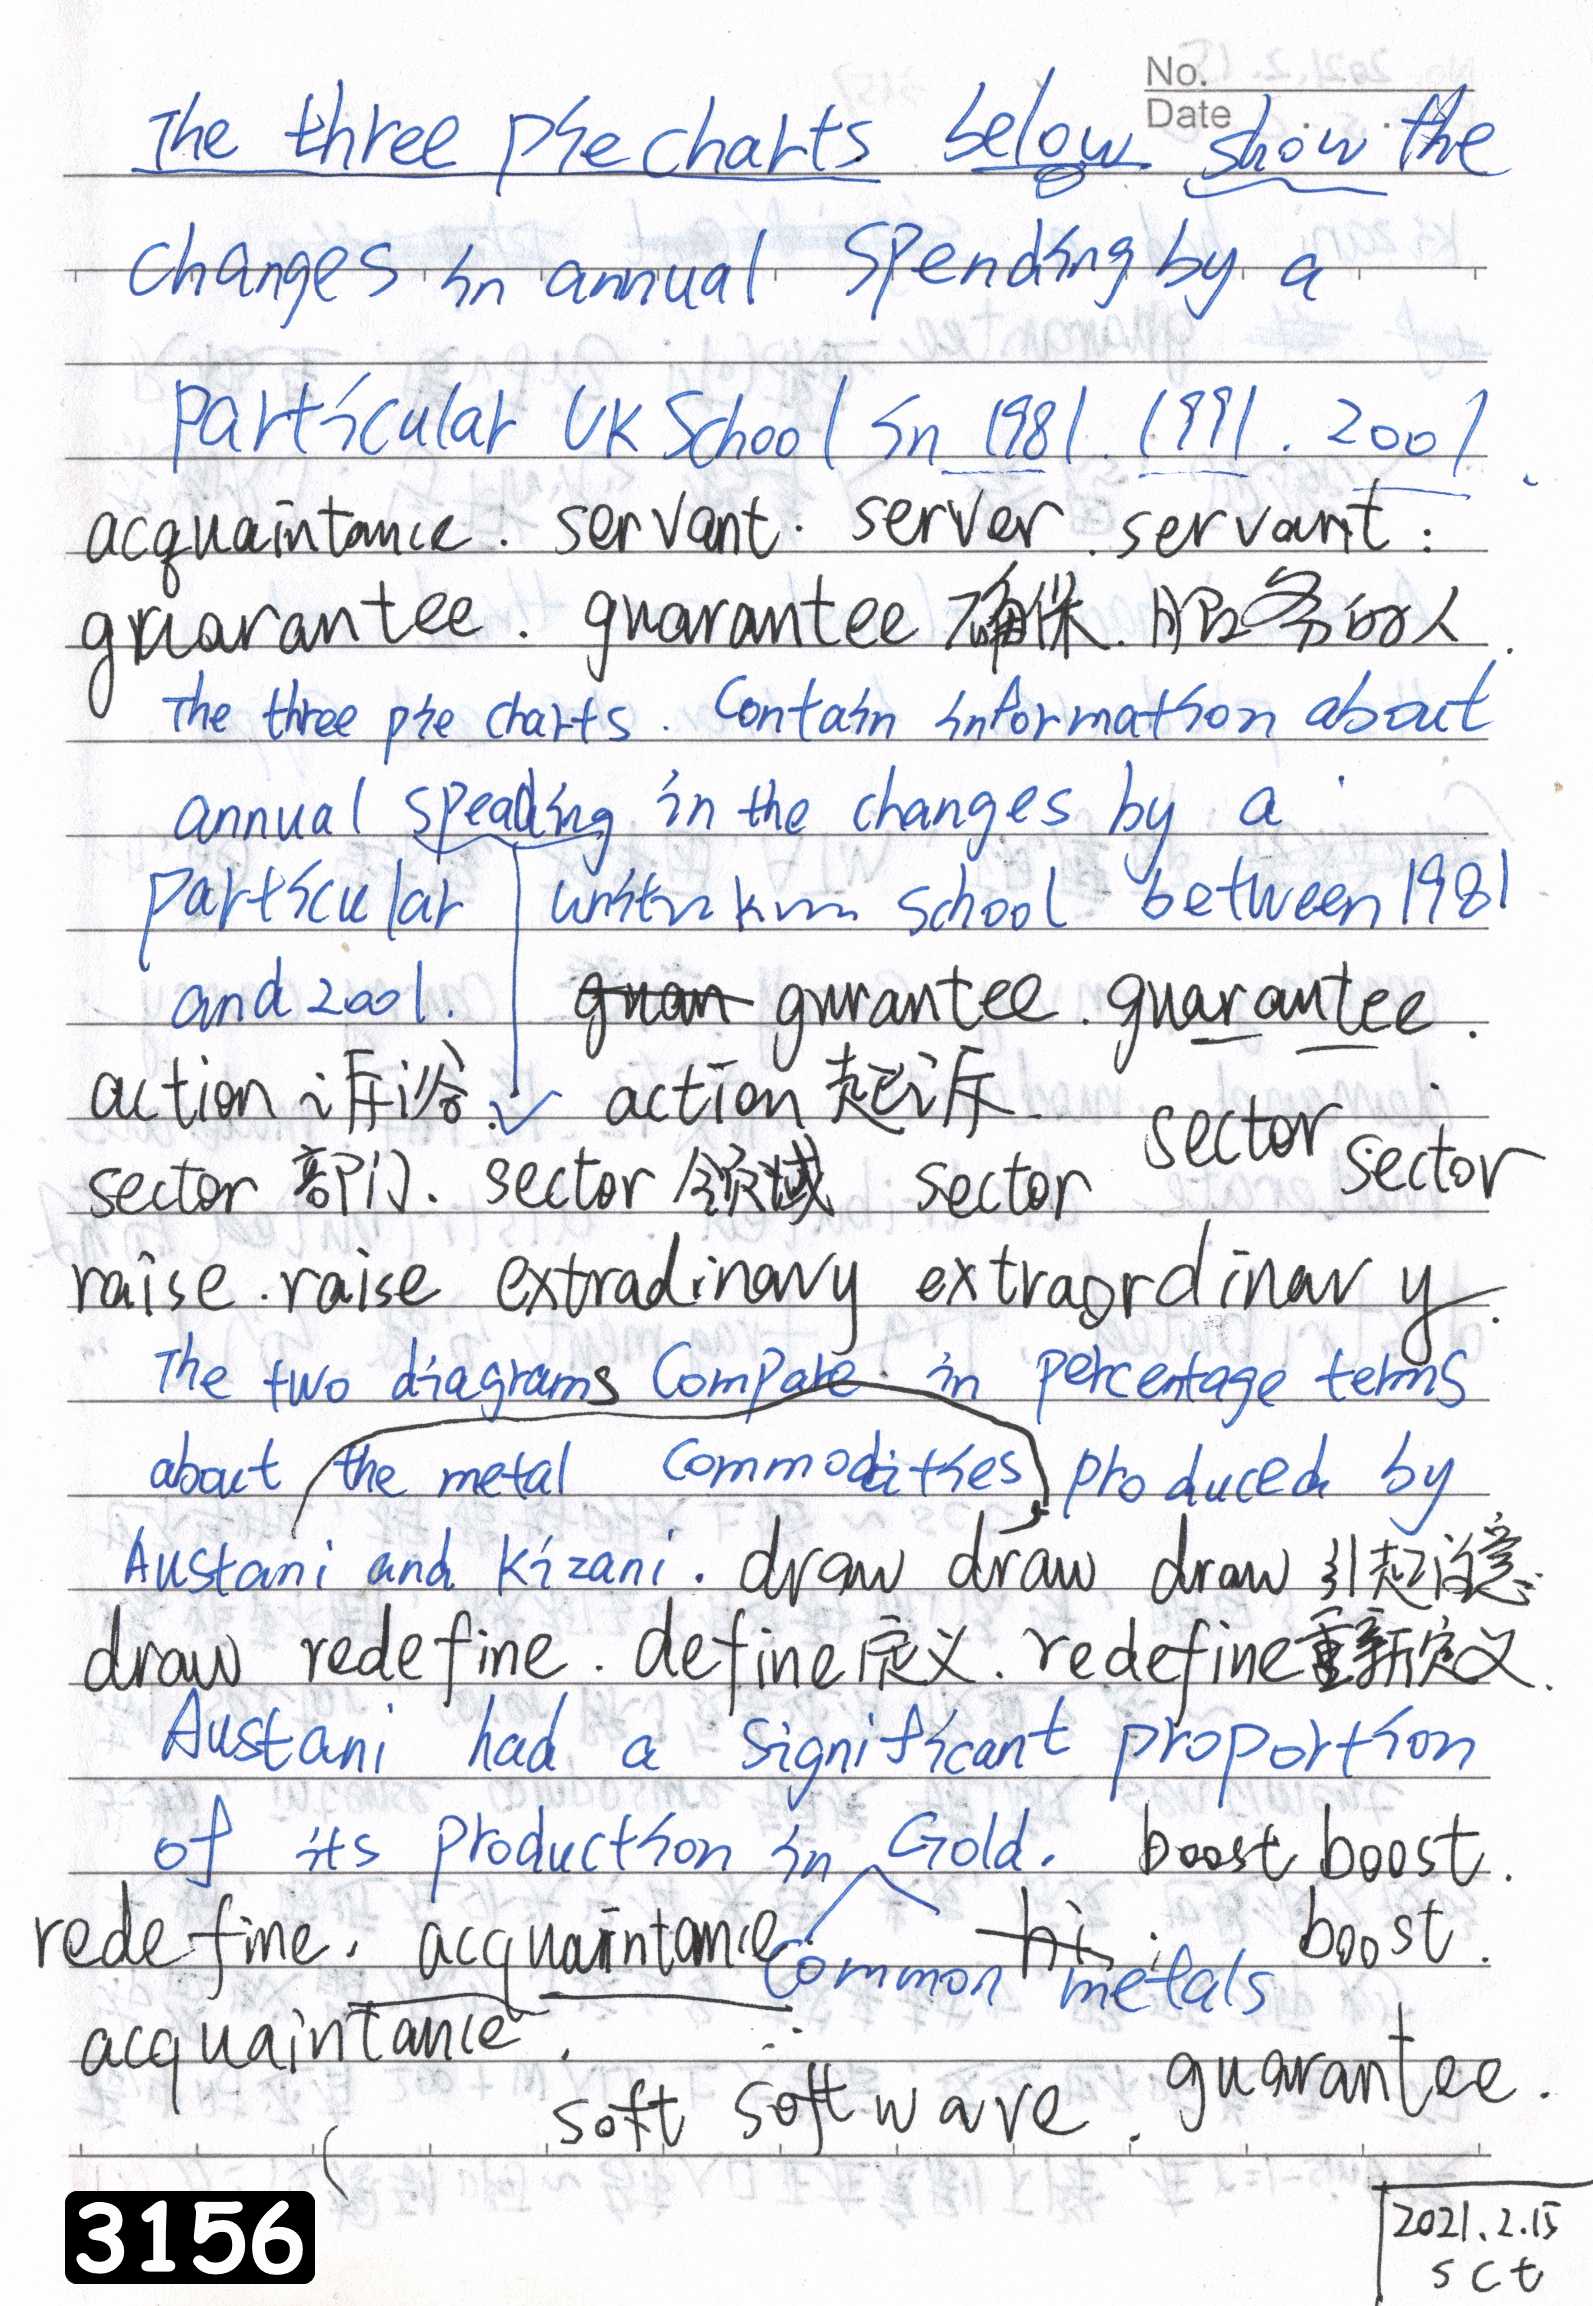 No.
Date
The three pie charts below show the
changes in annual spending by a
particular UK School in 1981. 1991. 2001.
acquaintance. servant. server. servant.
guarantee. guarantee 确保. 服务的人.
The three pie charts. Contain information about
annual speading in the changes by a
particular school between 1981
and 2001. guan gurantee. guarantee.
action 诉讼. action 起诉.
sector 部门. sector 领域 sector sector sector
raise. raise extradinary extraordinary.
The two diagrams Compare in percentage terms
about the metal Commodities produced by
Austani and Kizani. draw draw draw 引起注意.
draw redefine. define 定义. redefine 重新定义.
Austani had a significant proportion
of its production in Gold. boost boost.
redefine. acquaintance. hi boost.
Common metals
acquaintance.
soft software. guarantee.
3156
2021.2.15
sct